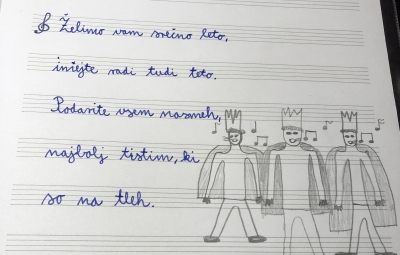 Želimo vam srečno leto,
imejte radi tudi teto.
Podarite vsem nasmeh,
najbolj tistim, ki
so na tleh.